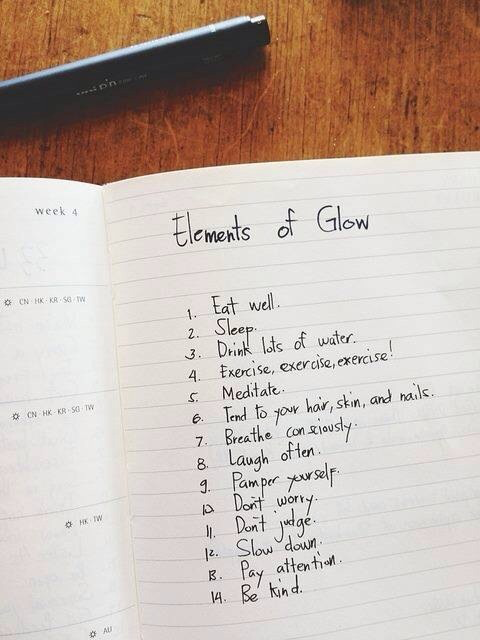 week 4
CN · HK · KR · SG · TW
CN · HK · KR · SG · TW
HK · TW
AU
Elements of Glow
1. Eat well.
2. Sleep.
3. Drink lots of water.
4. Exercise, exercise, exercise!
5. Meditate.
6. Tend to your hair, skin, and nails.
7. Breathe consciously.
8. Laugh often.
9. Pamper yourself.
10 Don't worry.
11. Don't judge.
12. Slow down.
13. Pay attention.
14. Be kind.